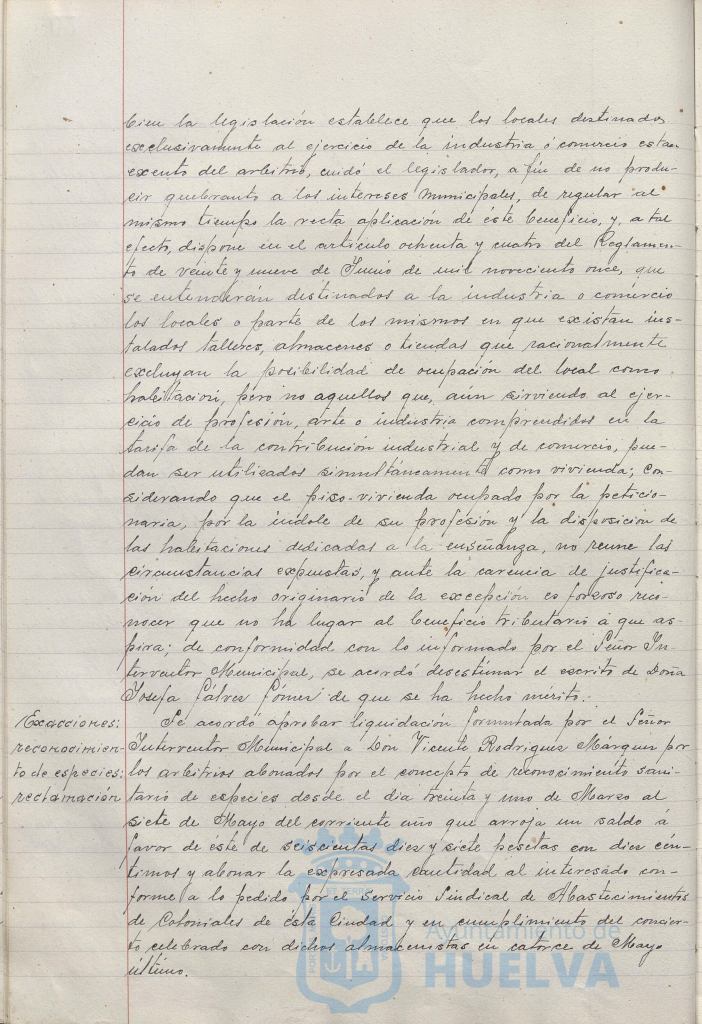 bien la legislación establece que los locales destinados
exclusivamente al ejercicio de la industria ó comercio estan
exento del arbitrio, cuidó el legislador, a fin de no produ-
cir quebranto a los intereses municipales, de regular al
mismo tiempo la recta aplicación de éste beneficio, y, a tal
efecto, dispone en el articulo ochenta y cuatro del Reglamen-
to de veinte y nueve de Junio de mil noveciento once, que
se entenderán destinados a la industria o comercio
los locales o parte de los mismos en que existan ins-
talados talleres, almacenes o tiendas que racionalmente
excluyan la posibilidad de ocupación del local como
habitación, pero no aquellos que, aún sirviendo al ejer-
cicio de profesión, arte o industria comprendidos en la
tarifa de la contribución industrial y de comercio, pue-
dan ser utilizados simultáneamente como vivienda; con-
siderando que el piso-vivienda ocupado por la peticio-
naria, por la índole de su profesión y la disposición de
las habitaciones dedicadas a la enseñanza, no reune las
circunstancias expuestas, y ante la carencia de justifica-
ción del hecho originario de la excepción es forzoso reco-
nocer que no ha lugar al beneficio tributario á que as-
pira; de conformidad con lo informado por el Señor In-
terventor Municipal, se acordó desestimar el escrito de Doña
Josefa Gálvez Gómez de que se ha hecho mérito.
Exacciones:
reconocimien-
to de especies:
reclamación
Se acordó aprobar liquidación formulada por el Señor
Interventor Municipal a Don Vicente Rodriguez Márquez por
los arbitrios abonados por el concepto de reconocimiento sani-
tario de especies desde el dia treinta y uno de Marzo al
siete de Mayo del corriente año que arroja un saldo á
favor de éste de seiscientas diez y siete pesetas con diez cén-
timos y abonar la expresada cantidad al interesado con-
forme a lo pedido por el Servicio Sindical de Abastecimientos
de Coloniales de ésta Ciudad y en cumplimiento del concier-
to celebrado con dichos almacenistas en catorce de Mayo
último.
Ayuntamiento de
HUELVA